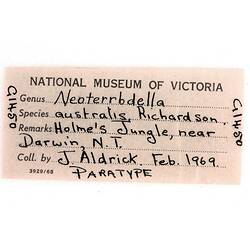 NATIONAL MUSEUM OF VICTORIA
Genus Neoterrbdella
Species australis Richardson
Remarks Holme's Jungle, near
Darwin, N.T.
Coll. by J. Aldrick. Feb. 1969.
3929/68 PARATYPE
G1450
G1450